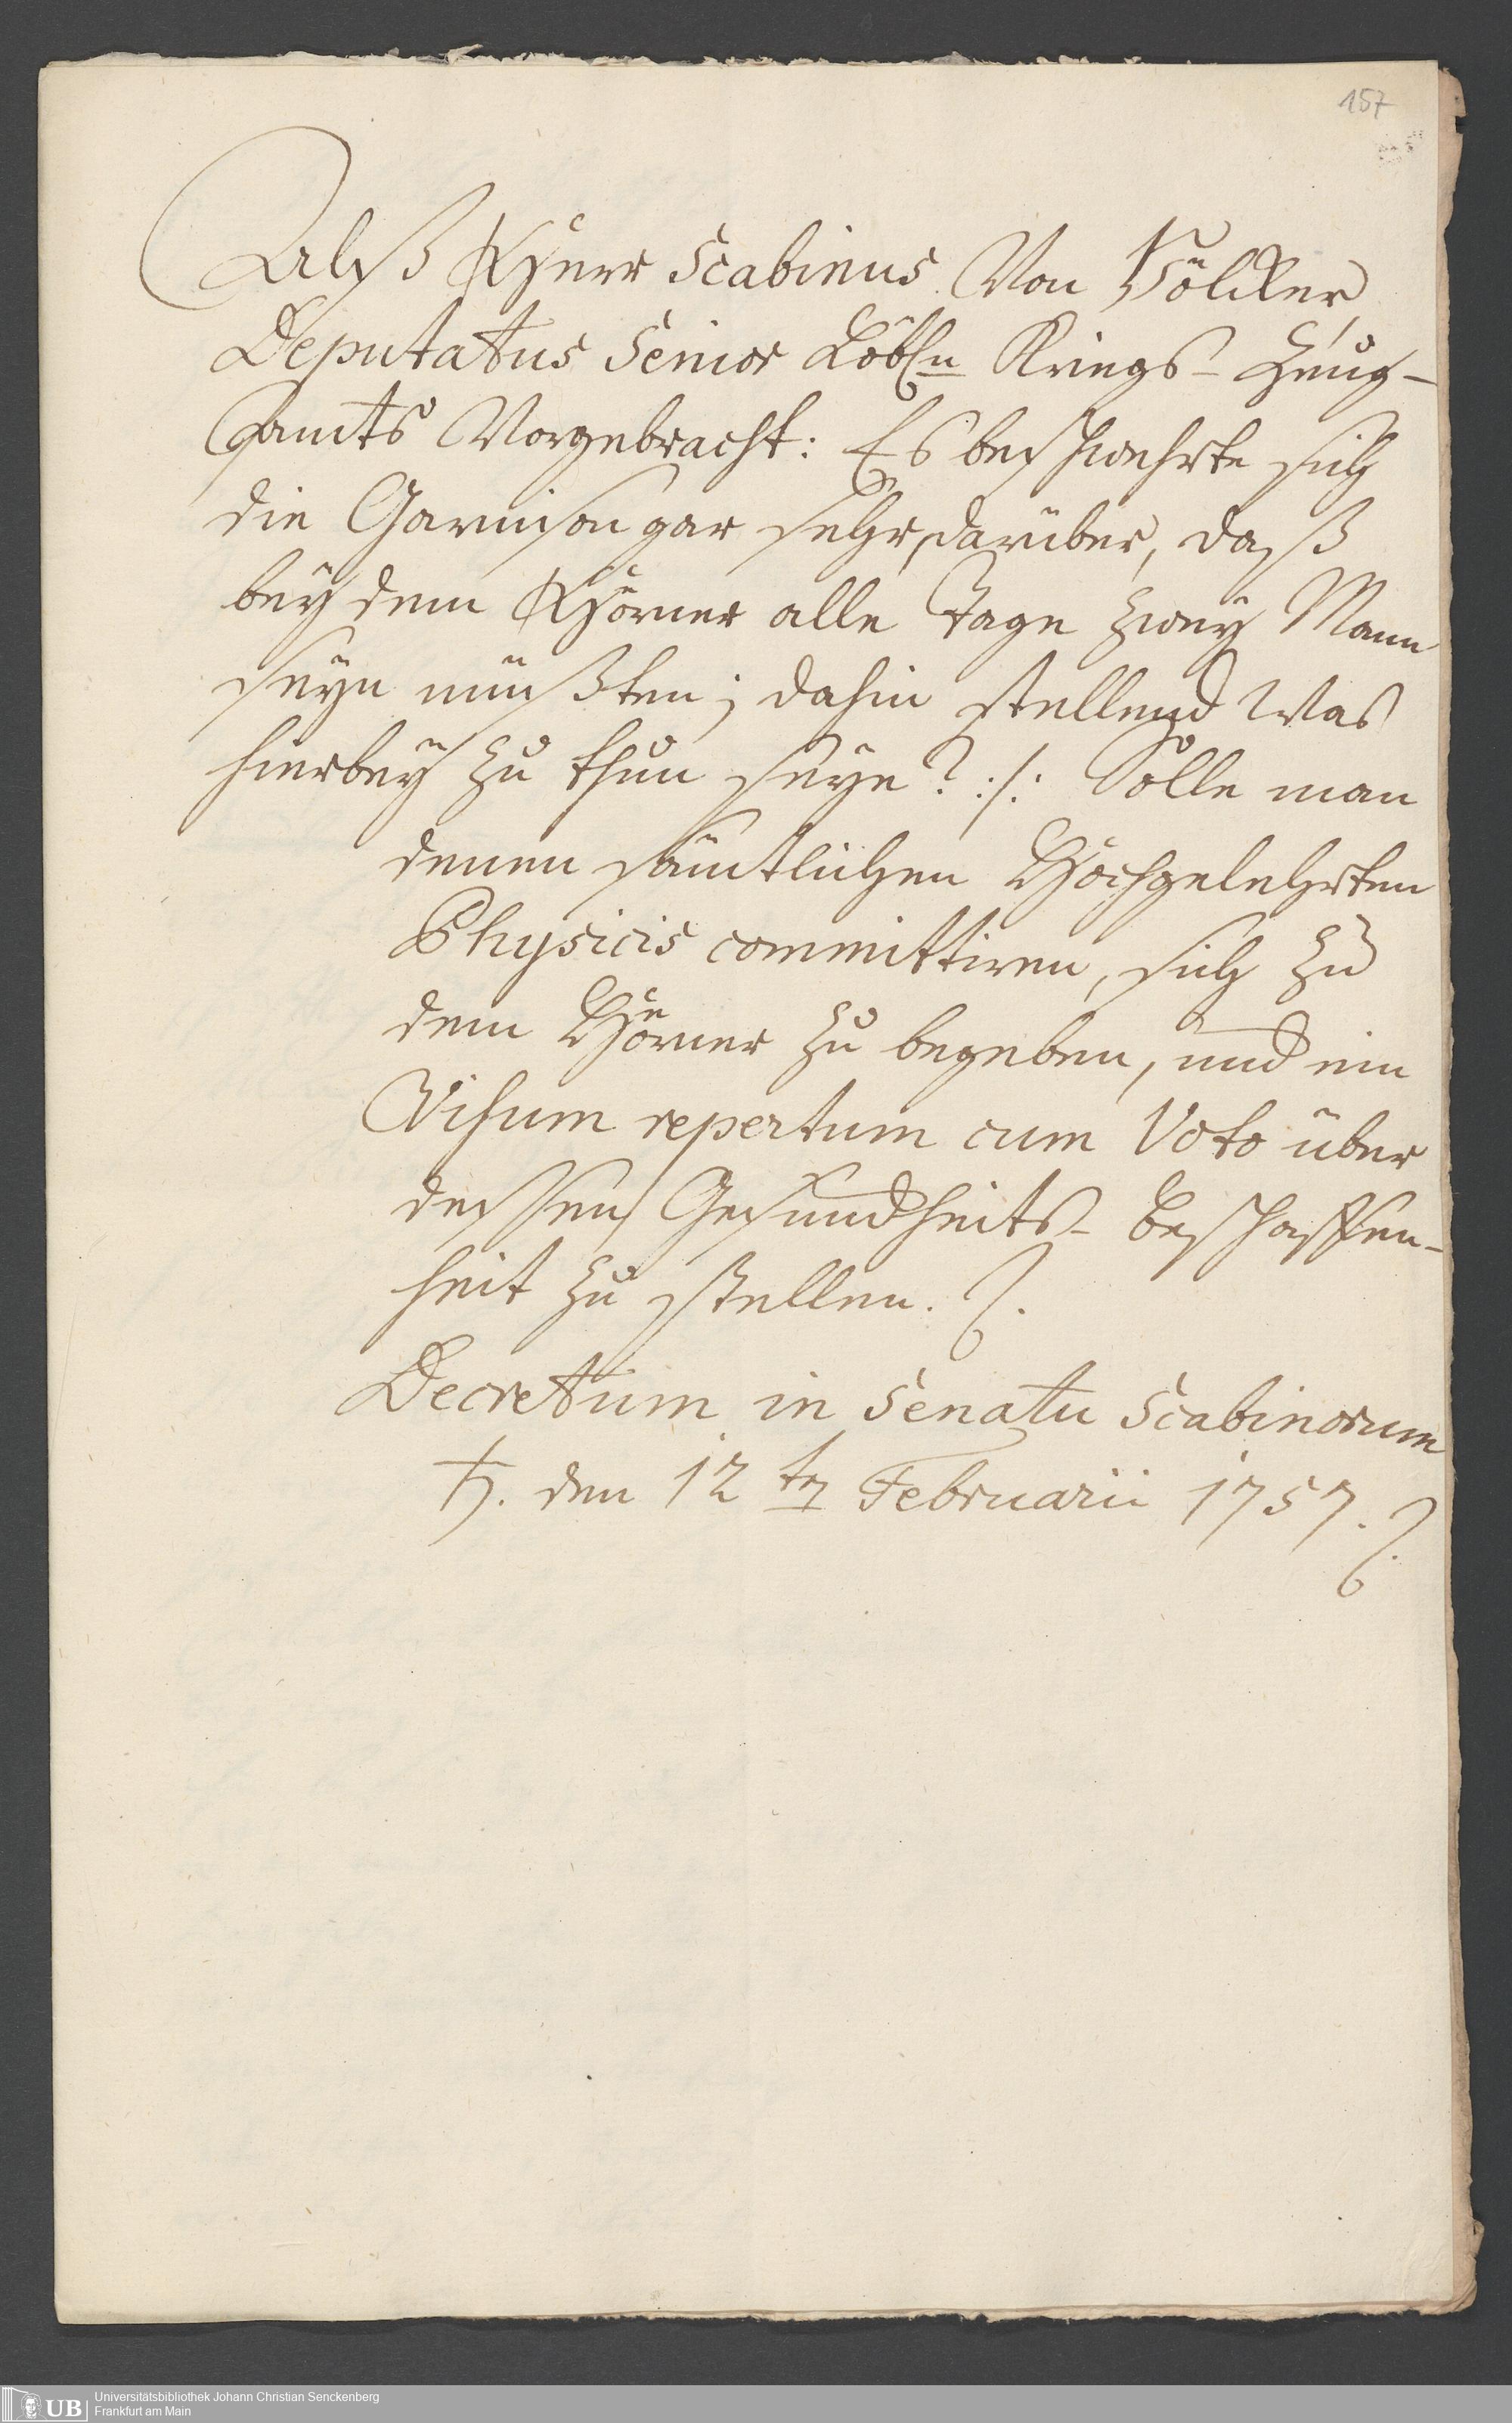 157
Alß Herr Scabinus Von Völcker,
Deputatus Senior Löbln Kriegs-Zeug-
Amts Vorgebracht: Es beschwehrte sich
die Garnison gar sehr, darüber, daß
bey dem Hörner alle Tage zwey Mann
seyn müßten; dahin stellend Was
hierbey zu thun seye? :/: Solle man
denen sämtlichen Hochgelehrten
Physicis committiren, sich zu
dem Hörner zu begeben, und ein
Visum repertum cum Voto über
dessen Gesundheits-Beschaffen-
heit zu stellen.
Decretum in Senatu Scabinorum
♄. den 12ten Februarii 1757.
UB
Universitätsbibliothek Johann Christian Senckenberg
Frankfurt am Main